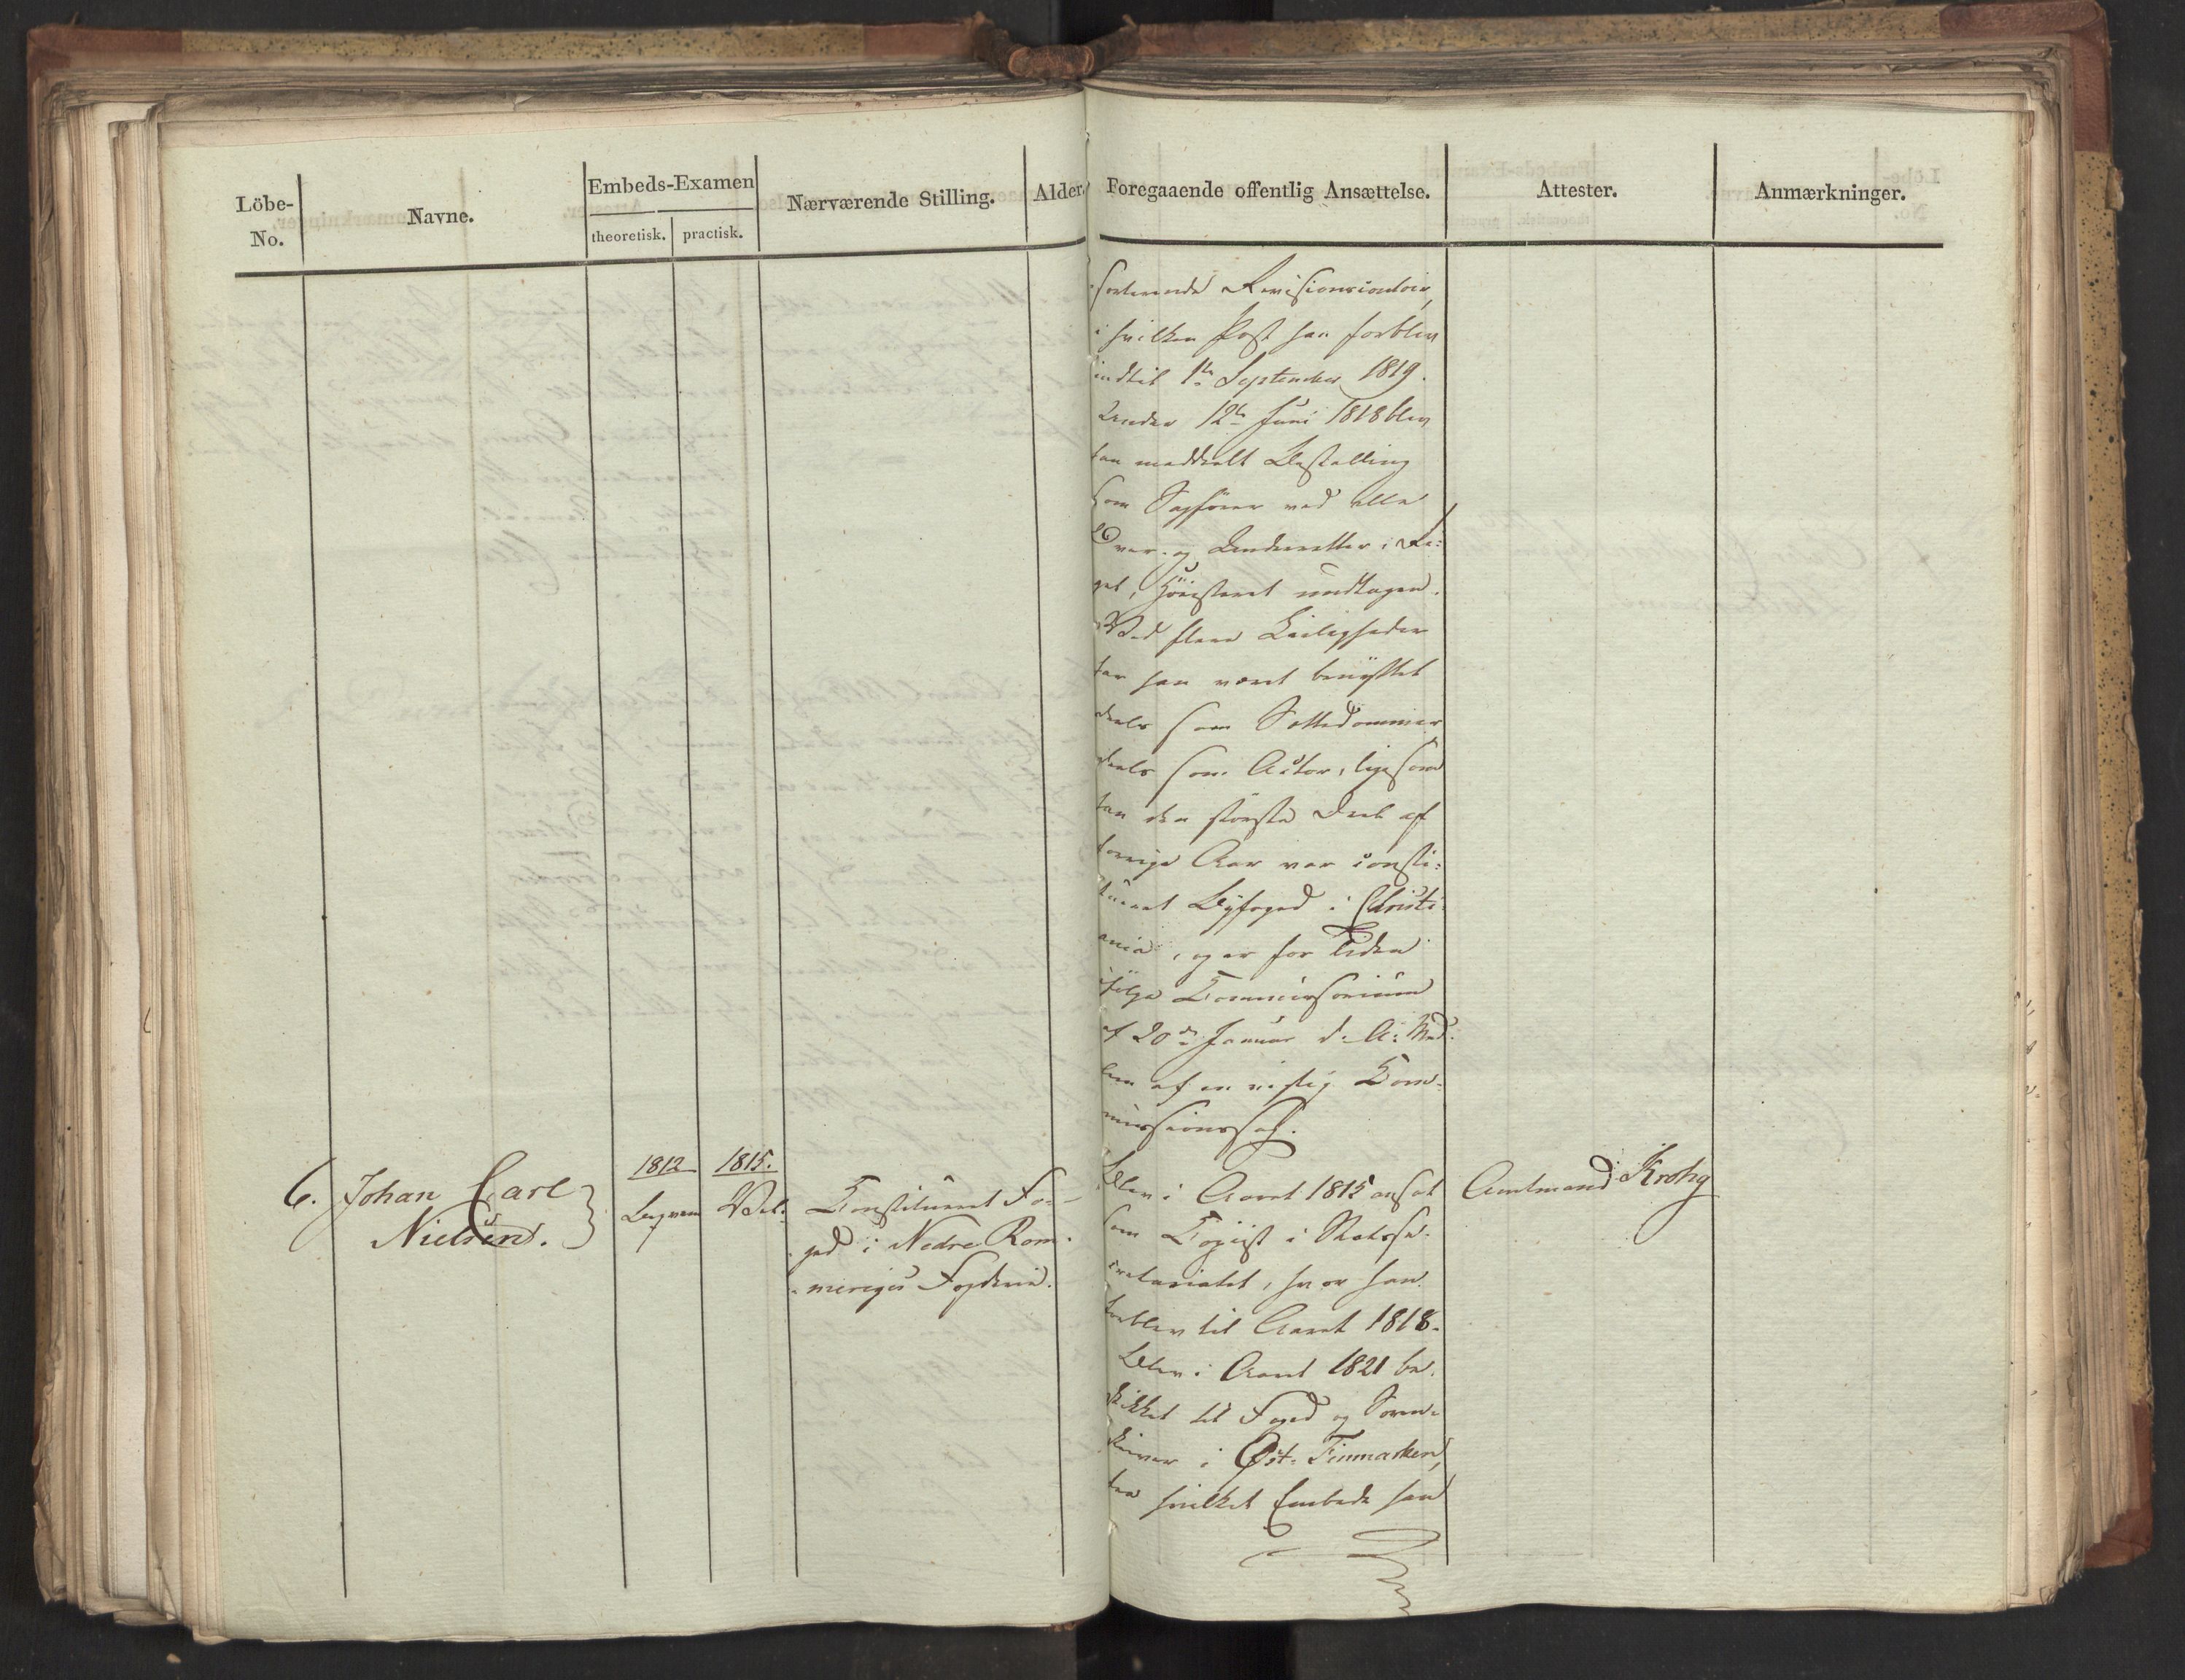 Löbe-
No.
Navne.
Embeds-Examen
theoretisk.
practisk.
Nærværende Stilling.
Alder.
Foregaaende offentlig Ansættelse.
Attester.
Anmærkninger.
sorterende Revisionscontoir,
i hvilken Post han forblev
indtil 1ste September 1819.
Under 12te Juni 1818 blev
han meddeelt Bestalling
som Sagförer ved alle
Over- og Underretter i Ri-
get, Höiesteret undtagen.
Ved flere Leiligheder
har han været benÿttet
deels som Sættedommer
deels som Actor, ligesom
han den störste Deel af
forrige Aar var consti-
tueret Bÿfoged i Christi-
ania, og er for Tiden
ifölge Commissorium
af 20de Januar d. A. Med-
lem af en vigtig Com-
missionssag.
6.
Johan Carl
Nielsen.
1812
1815.
Constitueret Fo-
ged i Nedre Rom-
meriges Fogderie.
Blev i Aaret 1815 ansat
som Copiist i Statsse-
cretariatet, hvor han
forblev til Aaret 1818.
Blev i Aaret 1821 be-
skikket til Foged og Soren-
skriver i Öst-Finmarken,
fra hvilket Embede han
Amtmand Krohg